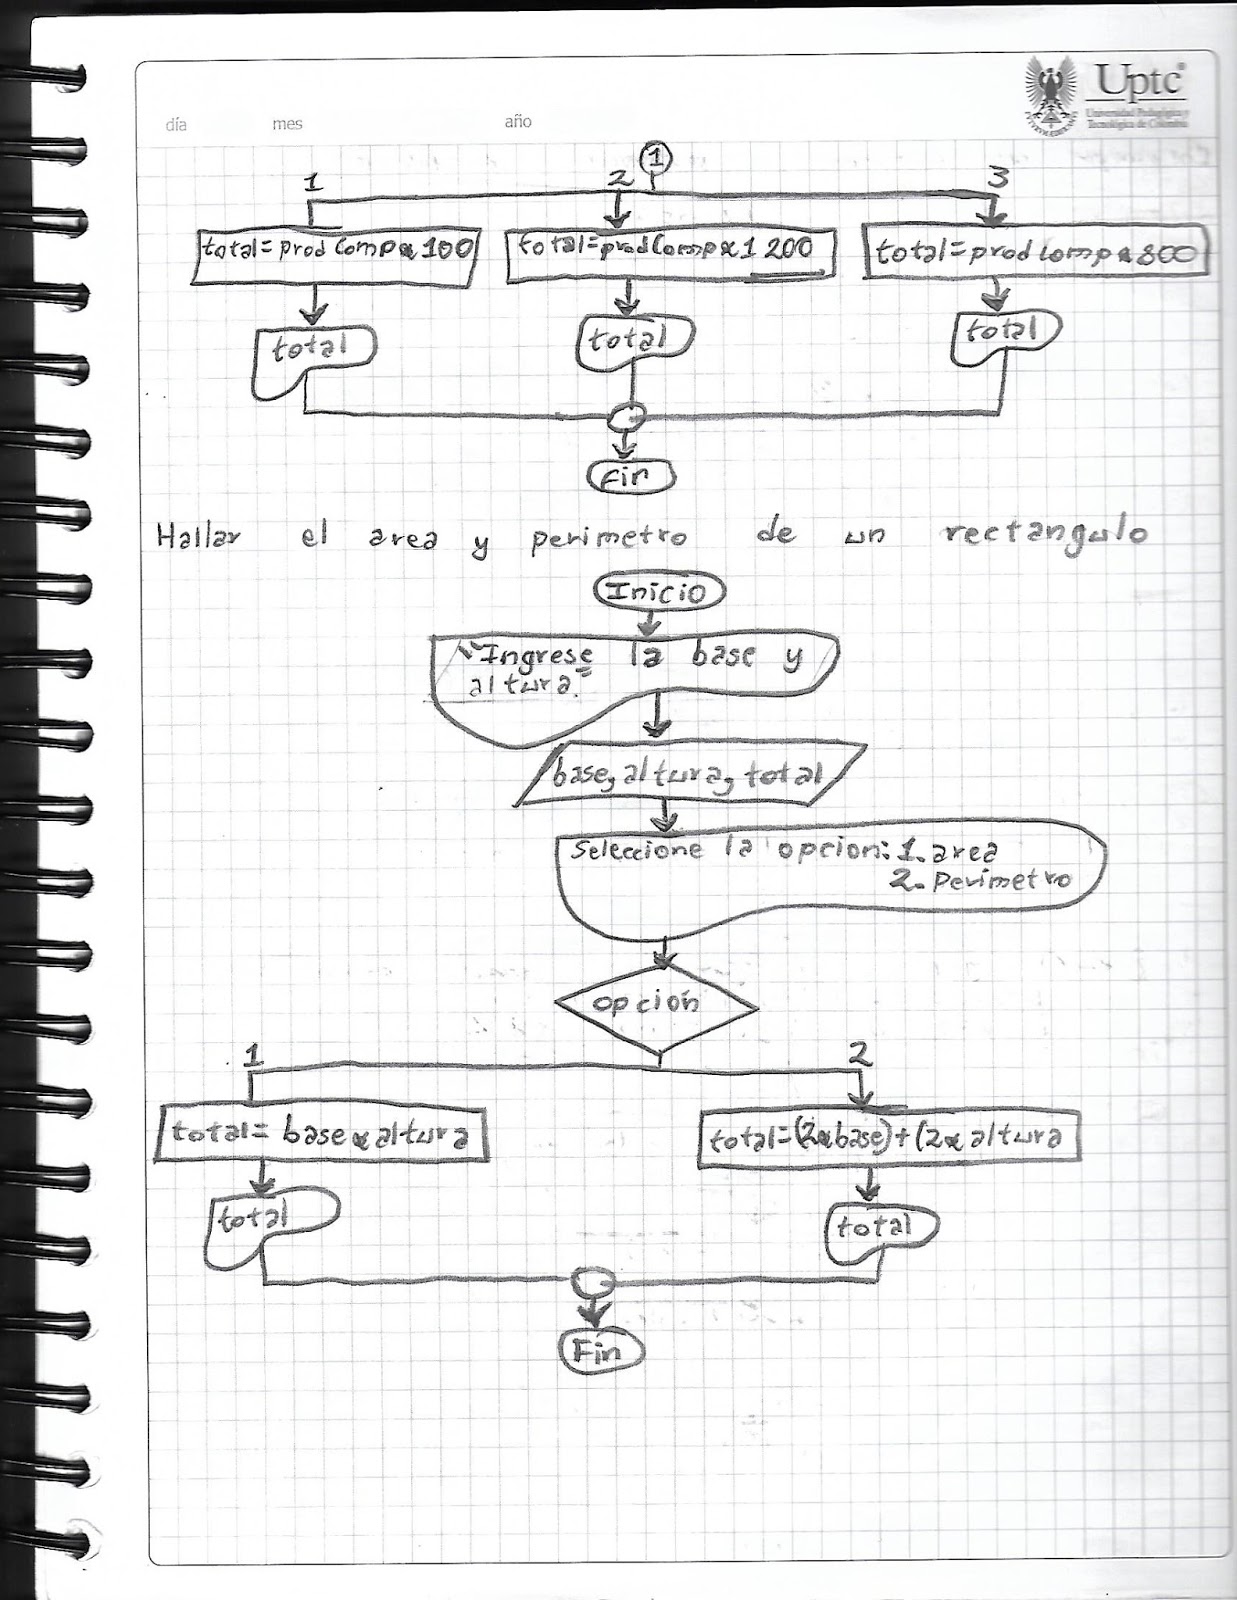 día mes año
Uptc
Universidad Pedagógica y
Tecnológica de Colombia
1
1 2 3
total=prodComp*100 total=prodComp*1200 total=prodcomp*800
total total total
Fin
Hallar el area y perimetro de un rectangulo
Inicio
"Ingrese la base y
altura."
base, altura, total
Seleccione la opcion: 1. area
2. Perimetro
opción
1 2
total= base*altura total=(2*base)+(2*altura
total total
Fin